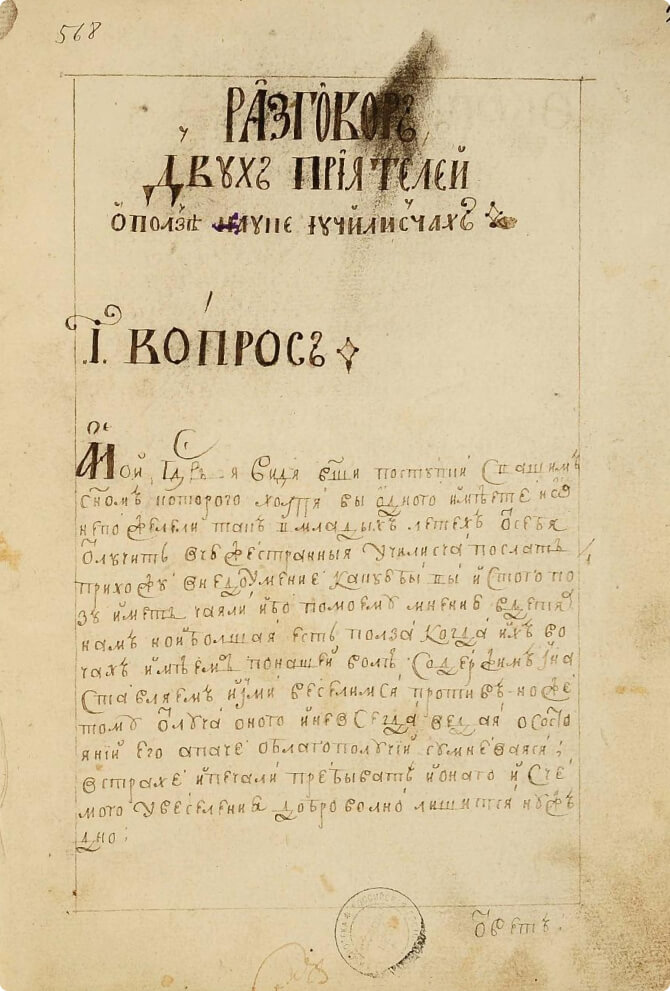 568
РАЗГОВОРЪ
ДВУХЪ ПРІЯТЕЛЕЙ
ѡ ползѣ науке іучилисчахъ
.І. ВОПРОСЪ
Мой Гдрь я видя ваши поступки с вашимъ
сномъ которого хотя вы одного имѣете
непожелели такъ вмладыхъ летехъ ѿсебя
ѿлучить вчюжестранныя училисча послать
прихожу внедоумение какуюбы вы истого по
зу иметь чаяли ибо помоему мнению вдетяⷯ
намъ ноиболшая есть полза когда ихъ во
чахъ имѣемъ понашей воле содержимъ ина
ставляемъ иими веселимся противъ ноже
тому ѿлуча оного иневсегда ведая ососто
яніи его апаче облагополучіи сумневаяся
встрахе ипечали пребывать ионаго
мого увеселения доброволно лишится нуж
дно:
ѿветъ: